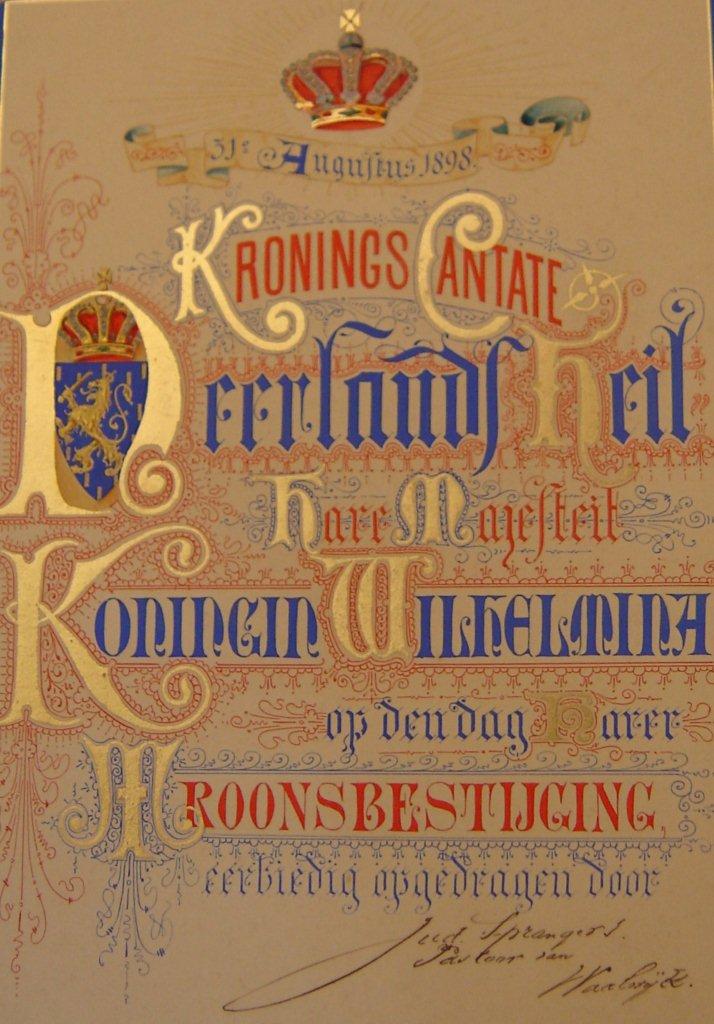 31e Augustus 1898.
KRONINGS CANTATE
Neerlands Heil
Hare Majesteit
KONINGIN WILHELMINA
op den dag Harer
TROONSBESTIJGING,
eerbiedig opgedragen door
Jud. Sprangers.
Pastoor van
Waalwijk.